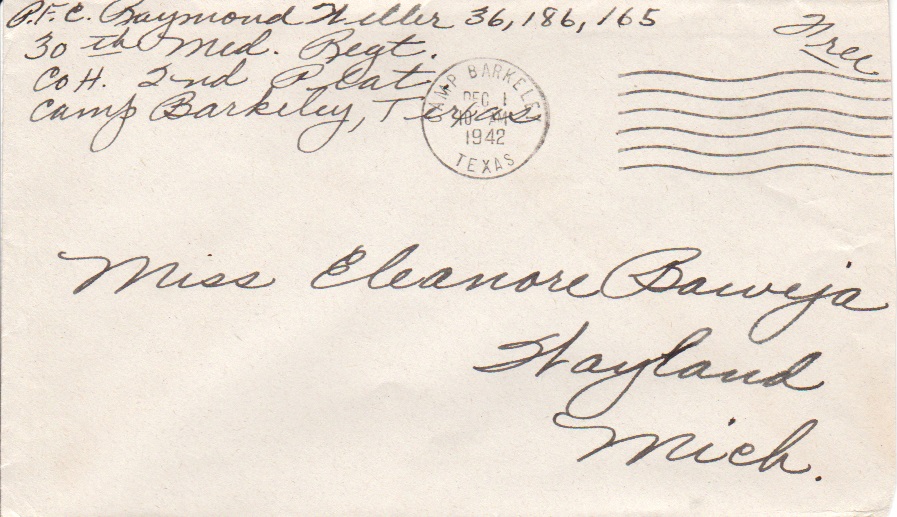 P.F.C. Raymond Heller 36,186,165
30th Med. Regt.
Co H. 2nd Plat.
Camp Barkeley, Texas
Free
CAMP BARKELEY
DEC 1
10 AM
1942
TEXAS
Miss Eleanore Baweja
Wayland
Mich.